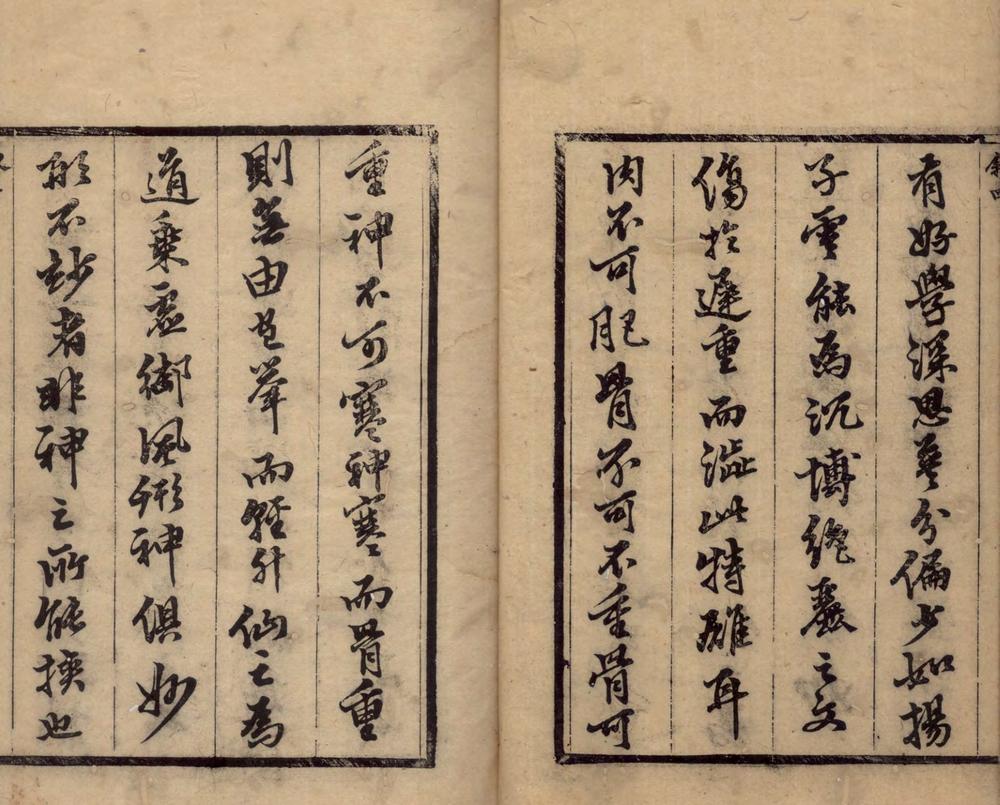 有好學深思英分偏少如揚
子雲能為沉博絶麗之文
傷於遲重而澁此特雄耳
肉不可肥骨不可不重骨可
重神不可寒神寒而骨重
則無由之舉而輕升仙之為
道乗虛御風形神俱妙
形不妙者非神之所能挾也